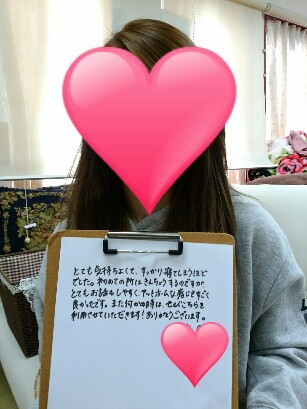 とても気持ちよくて、すっかり寝てしまうほど
でした。初めての所はきんちょうするのですが、
とてもお話もしやすく、アットホームな感じがすごく
良かったです。また何かの時は、ぜひこちらを
利用させていただきます！ありがとうございます。